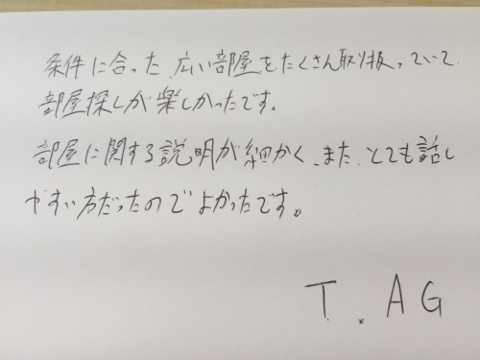 条件に合った、広い部屋をたくさん取り扱っていて、
部屋探しが楽しかったです。
部屋に関する説明が細かく、また、とても話し
やすい方だったのでよかったです。
T. AG